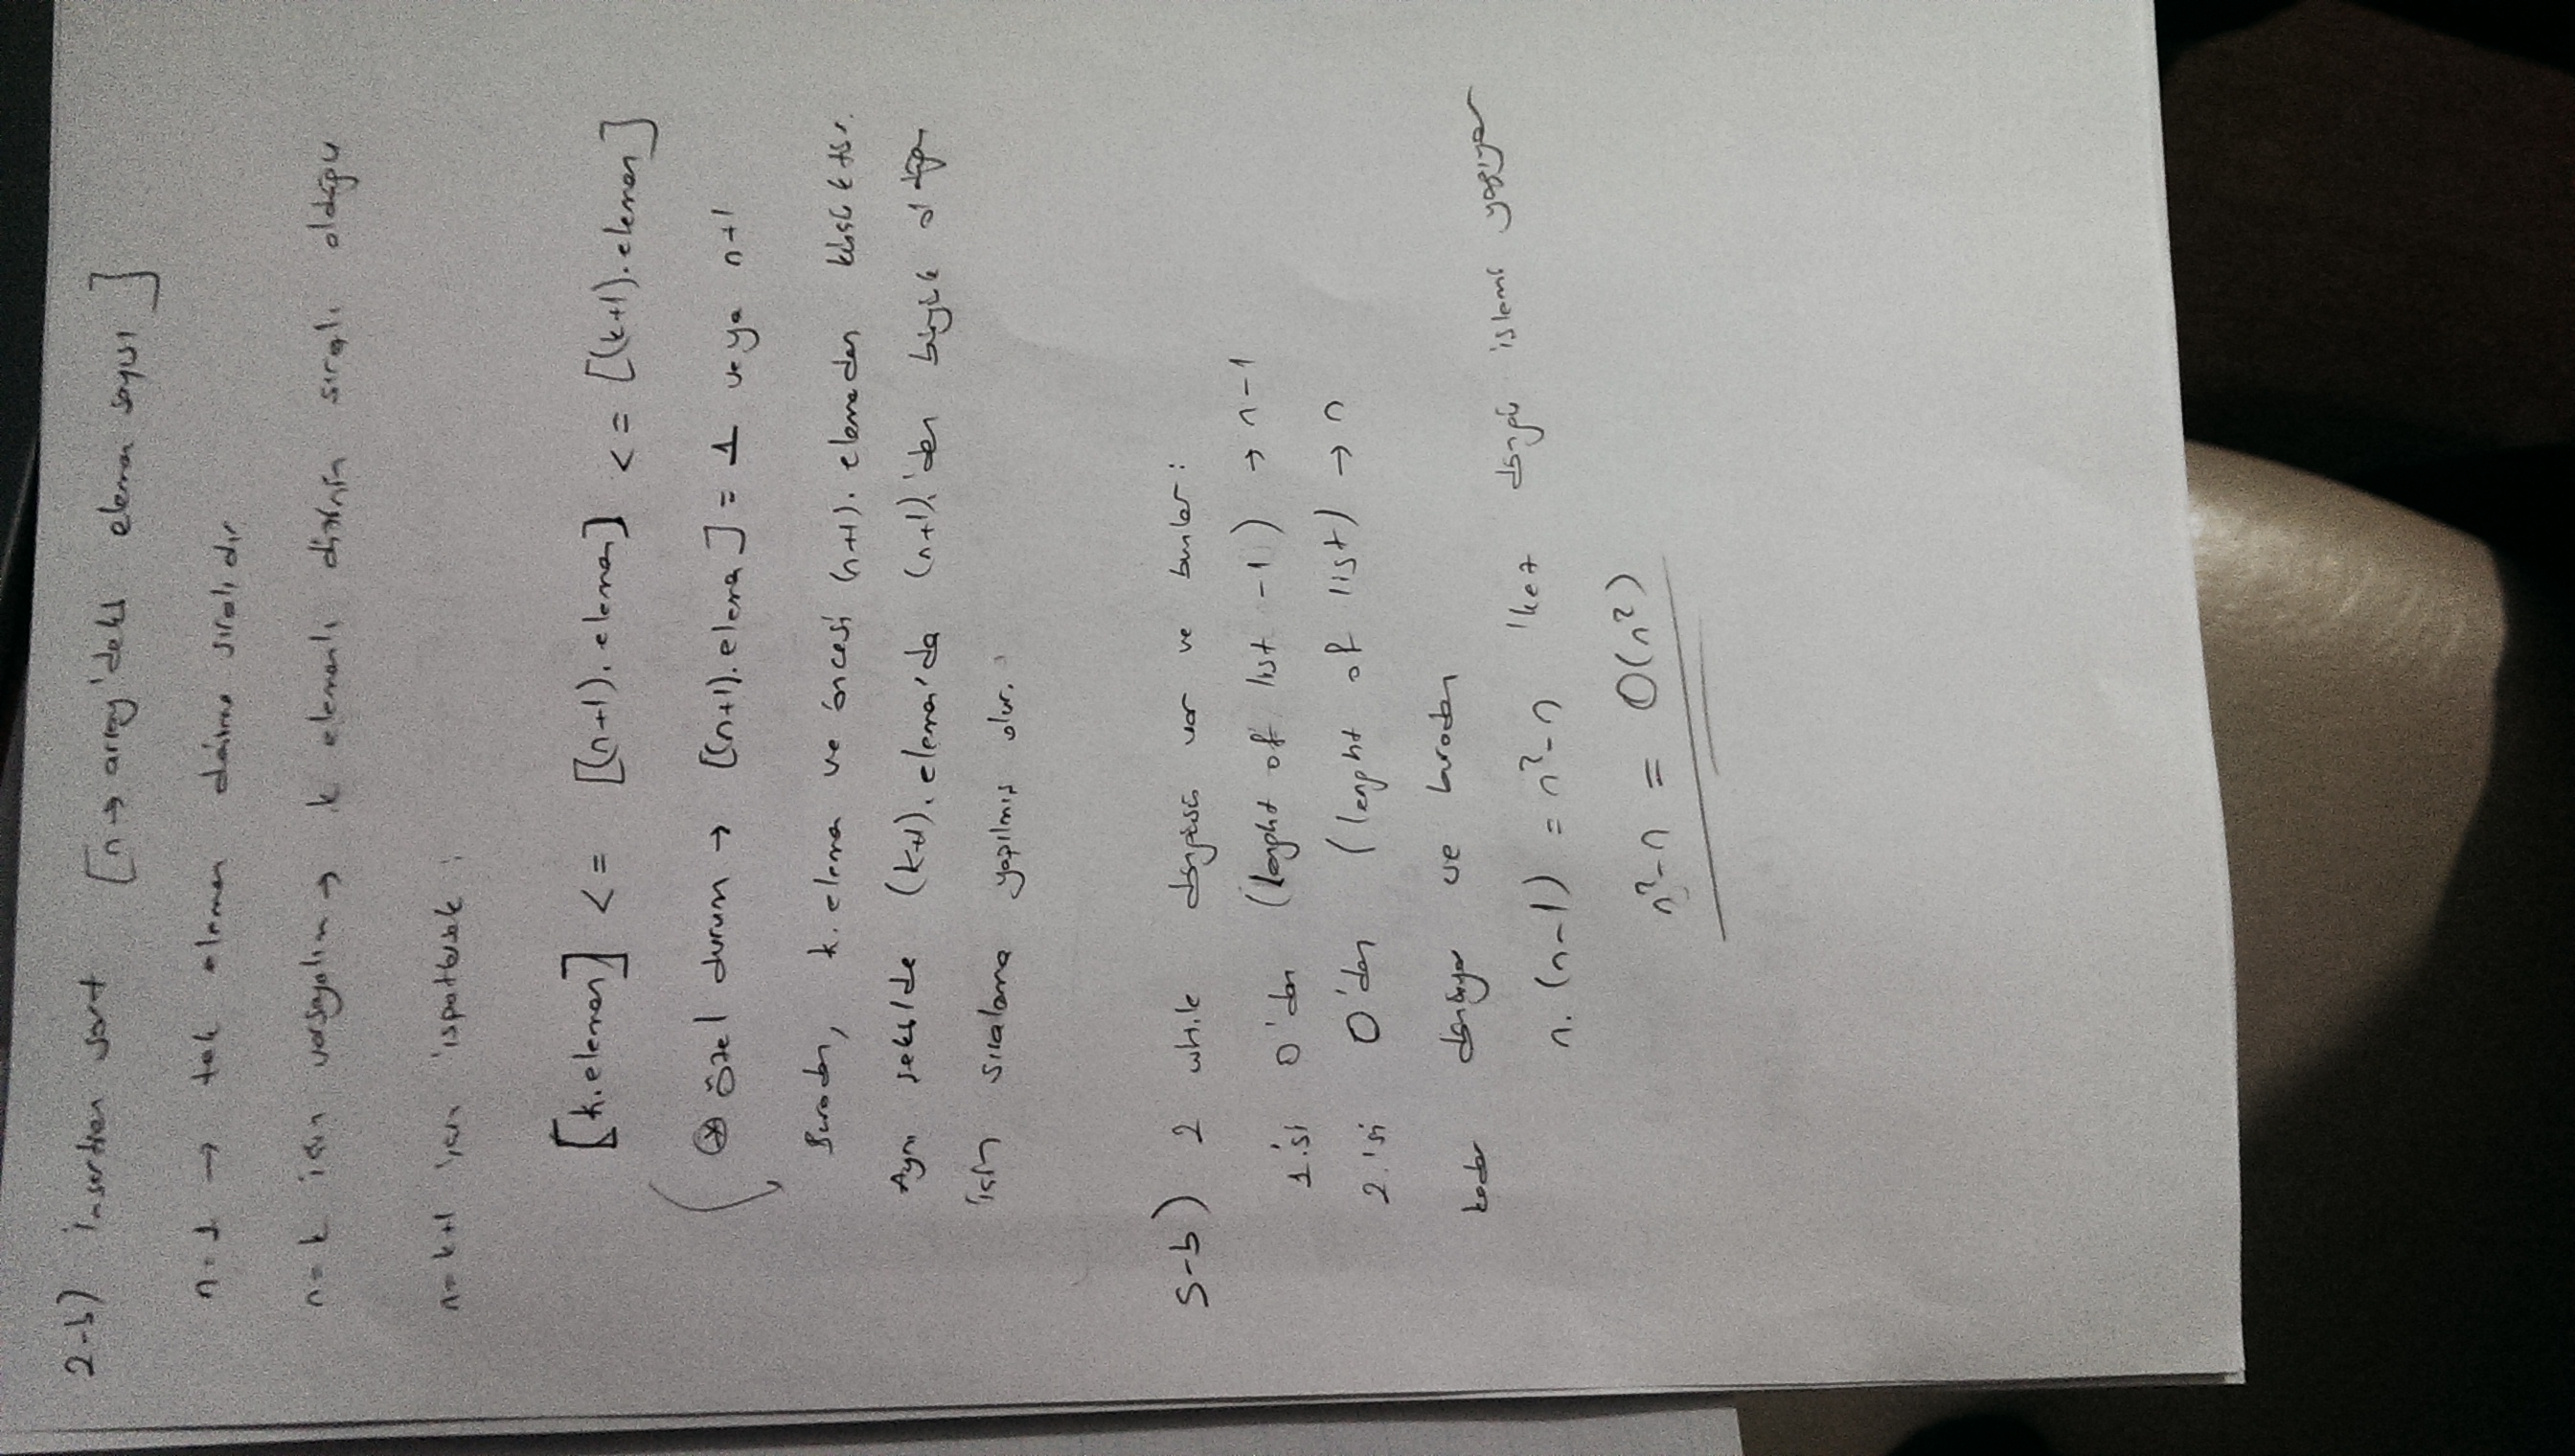 2-b) insertion sort [n → array'deki eleman sayısı]
n=1 → tek eleman daima sıralıdır
n=k için varsayalım → k elemanlı dizinin sıralı olduğu
n=k+1 için ispatlırsak :
[k.eleman] <= [(n+1).eleman] <= [(k+1).eleman]
⊛ özel durum → [(n+1).eleman] = 1 veya n+1
Buradan, k.eleman ve öncesi (n+1). elemandan küçüktür.
Aynı şekilde (k+1).eleman'da (n+1)'den büyük olduğu
için sıralama yapılmış olur.
5-b) 2 while döngüsü var ve bunlar:
1.si 0'dan (lenght of list -1) → n-1
2.si 0'dan (lenght of list) → n
kadar dönüyor ve buradan
n.(n-1) = n²-n 'ket döngü işlemi yapıyor
n²-n = O(n²)